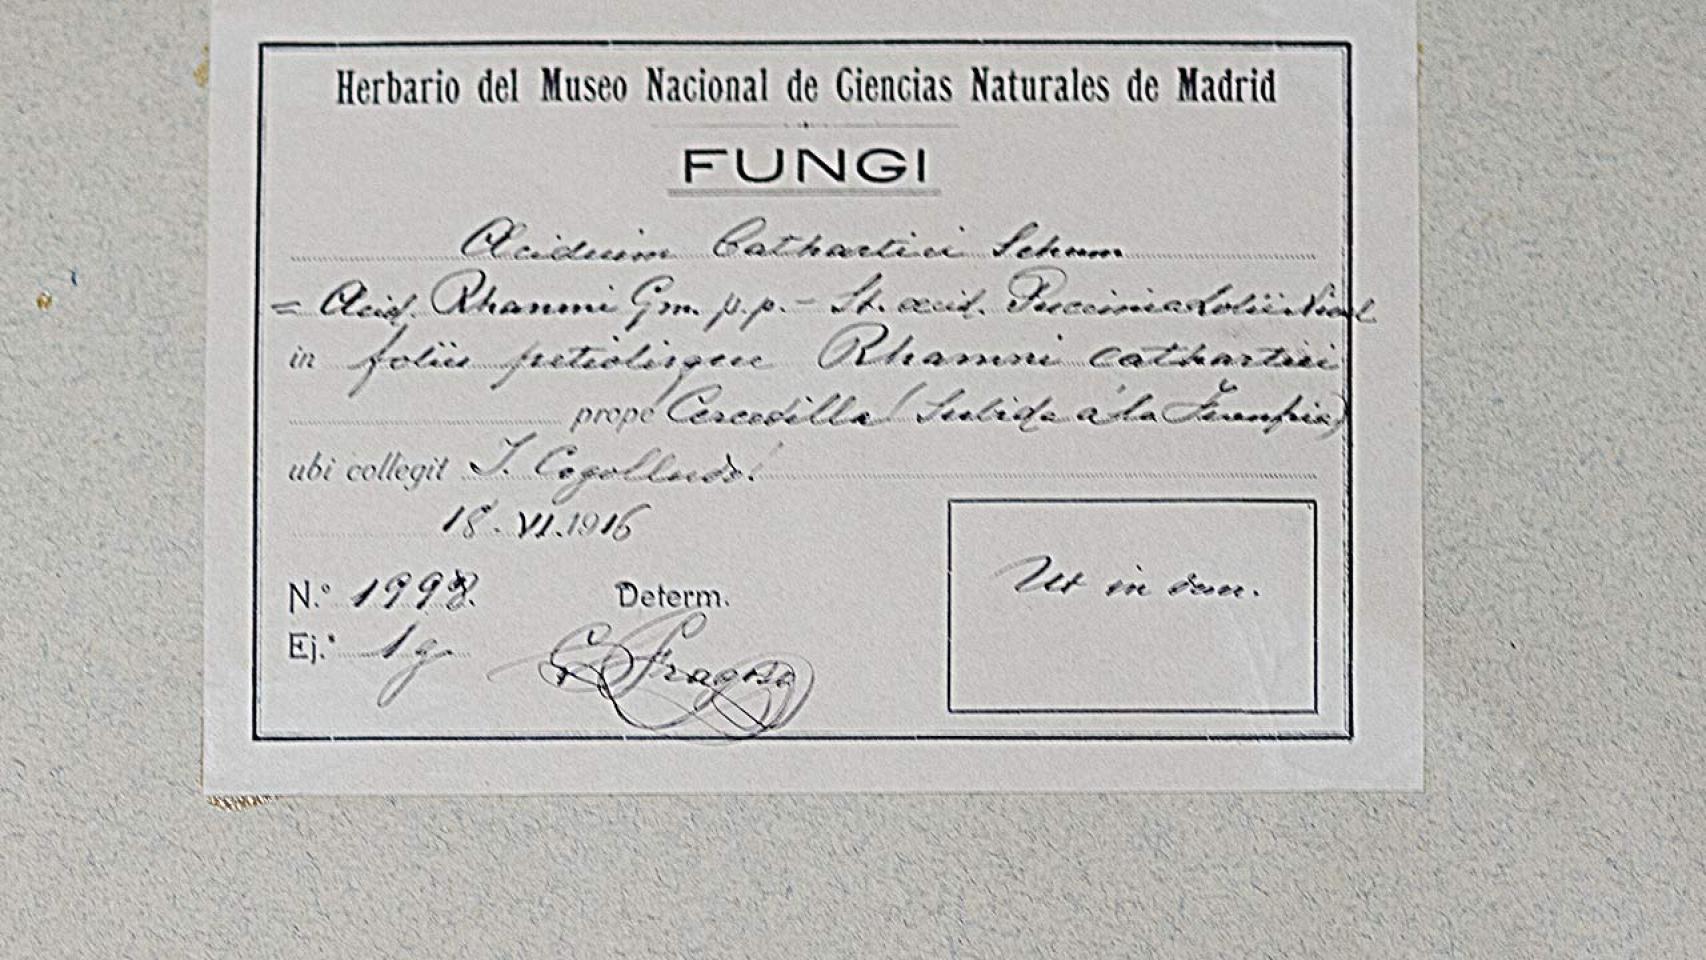 Herbario del Museo Nacional de Ciencias Naturales de Madrid
FUNGI
Æcidium Cathartici Schum
= Æcid. Rhamni Gm. p.p. - St. æcid. Puccinia Lolii Niel
in foliis petiolisque Rhamni cathartici
prope Cercedilla (Subida á la Fuenfria)
ubi collegit J. Cogolludo!
18-VI.1916
N.º 1998. Determ.
Ej.ˢ 1 g. G. Fragoso
Ut in